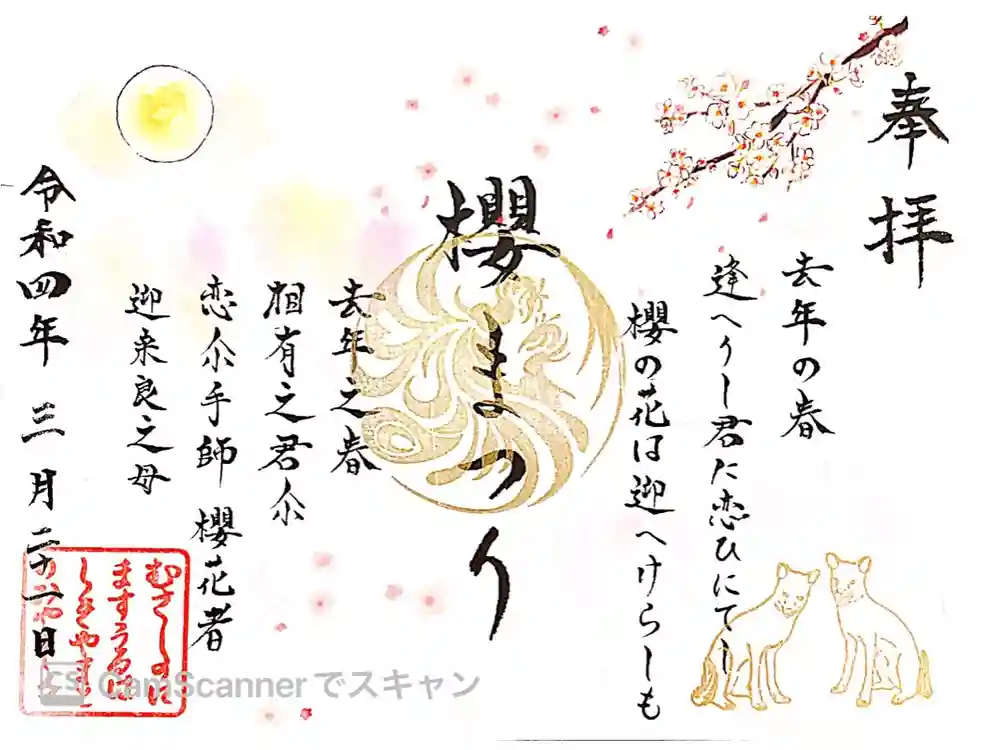 奉拝
去年の春
逢へりし君に恋ひにてし
櫻の花は迎へけらしも
櫻まつり
去年之春
相有之君尓
恋尓手師 櫻花者
迎来良之母
令和四年 三月二十一日
むさしのに
CamScannerでスキャン